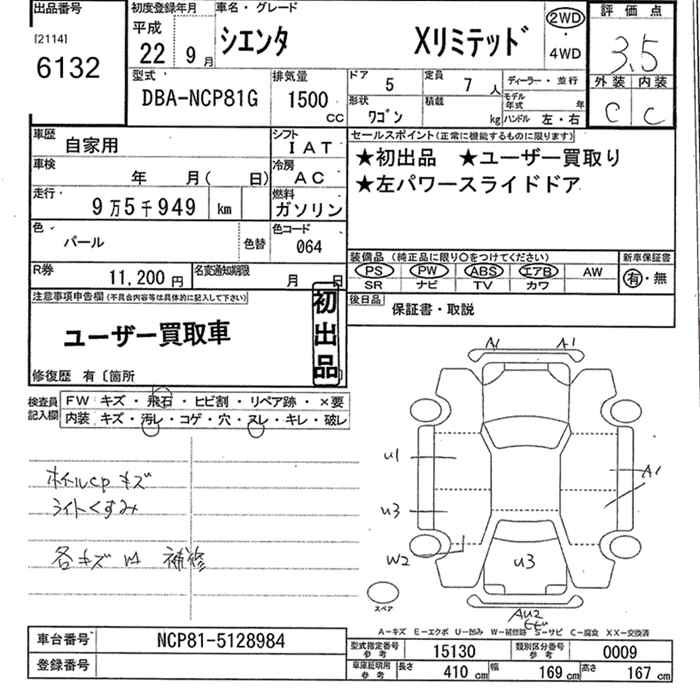 出品番号
[2114]
6132
初度登録年月
平成
22 9月
車名・グレード
シエンタ Xリミテッド
2WD
・
4WD
評価点
3.5
外装 内装
C C
型式
DBA-NCP81G
排気量
1500 cc
ドア 5
形状 ワゴン
定員 7人
積載 kg
ディーラー・並行
モデル年式 年
ハンドル 左・右
車歴 自家用
シフト IAT
車検 年 月( 日)
冷房 AC
走行・ 9万5千949 km
燃料 ガソリン
色・ パール 色替
色コード 064
R券 11,200円
名変通知期限 月 日
セールスポイント(正常に機能するものに限ります)
★初出品 ★ユーザー買取り
★左パワースライドドア
装備品(純正品に限り○をつけてください)
PS PW ABS エアB AW
SR ナビ TV カワ
新車保証書
有・無
後日品 保証書・取説
注意事項申告欄(不具合内容等は具体的に記入して下さい)
ユーザー買取車
初出品
修復歴 有〔箇所
検査員記入欄
FW キズ・飛石・ヒビ割・リペア跡・×要
内装 キズ・汚レ・コゲ・穴・スレ・キレ・破レ
ホイルcpキズ
ライトくすみ
各キズW 補修
A1 A1
U1
A1
U3
W2
U3
スペア
AU2
ヒビ
A-キズ E-エクボ U-凹み W-補修跡 S-サビ C-腐食 XX-交換済
車台番号 NCP81-5128984
登録番号
型式指定番号 参考 15130
類別区分番号 参考 0009
車庫証明用 参考 長さ 410cm 幅 169cm 高さ 167cm